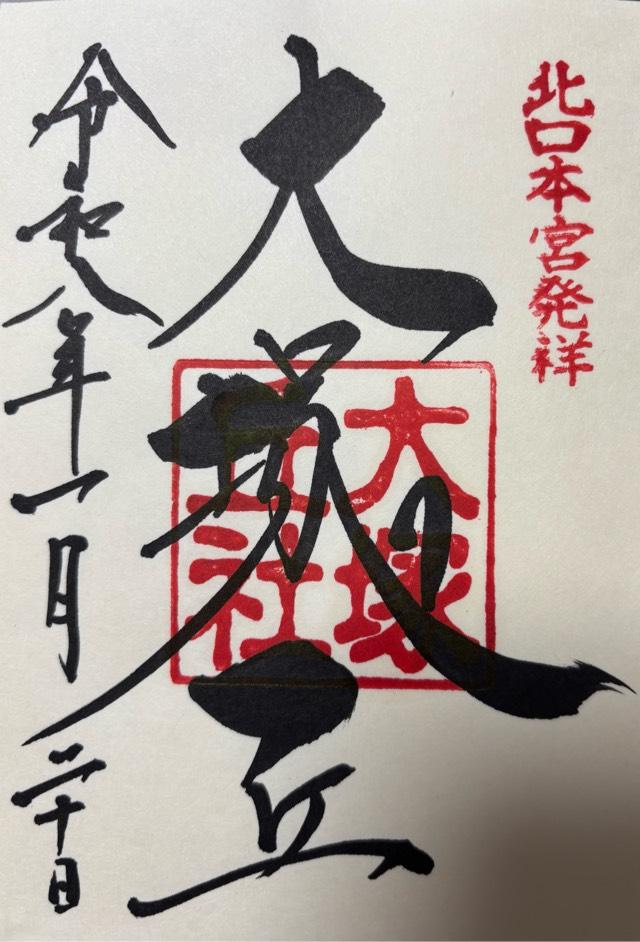 北口本宮発祥
大塚丘
大塚
丘社
令和八年一月二十日